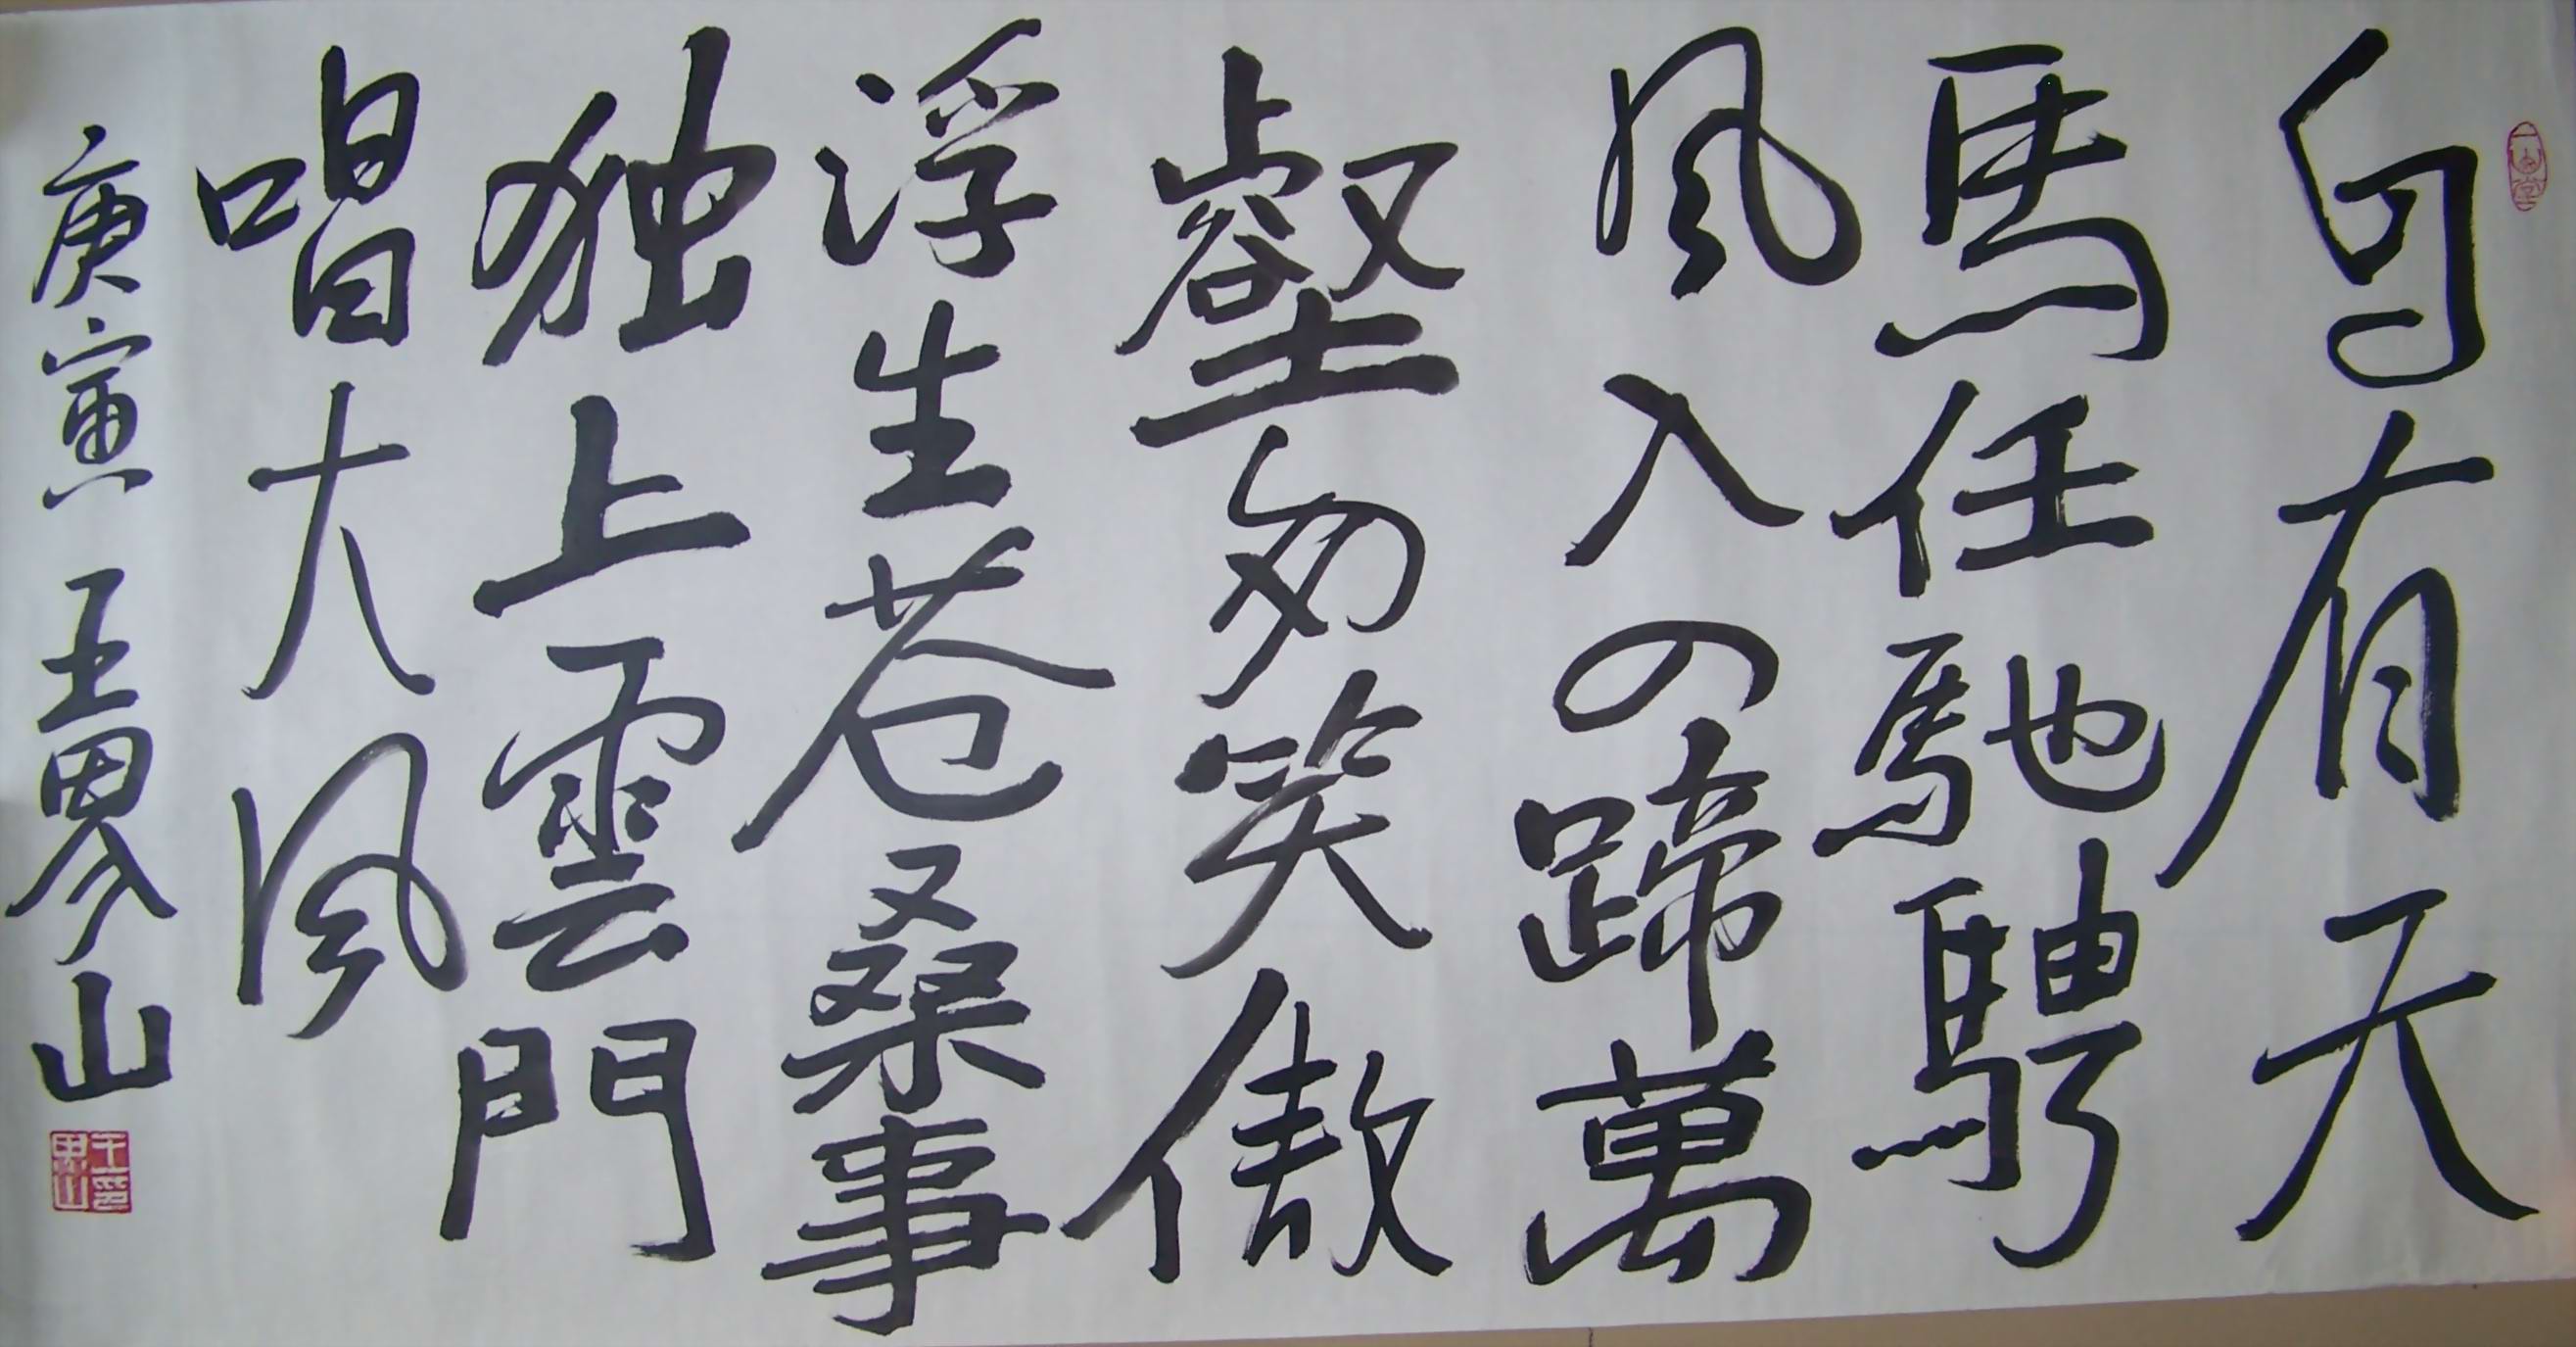 自有天
馬任馳騁
風入四蹄萬
壑匆笑傲
浮生苍桑事
独上雲門
唱大風
庚寅 王界山